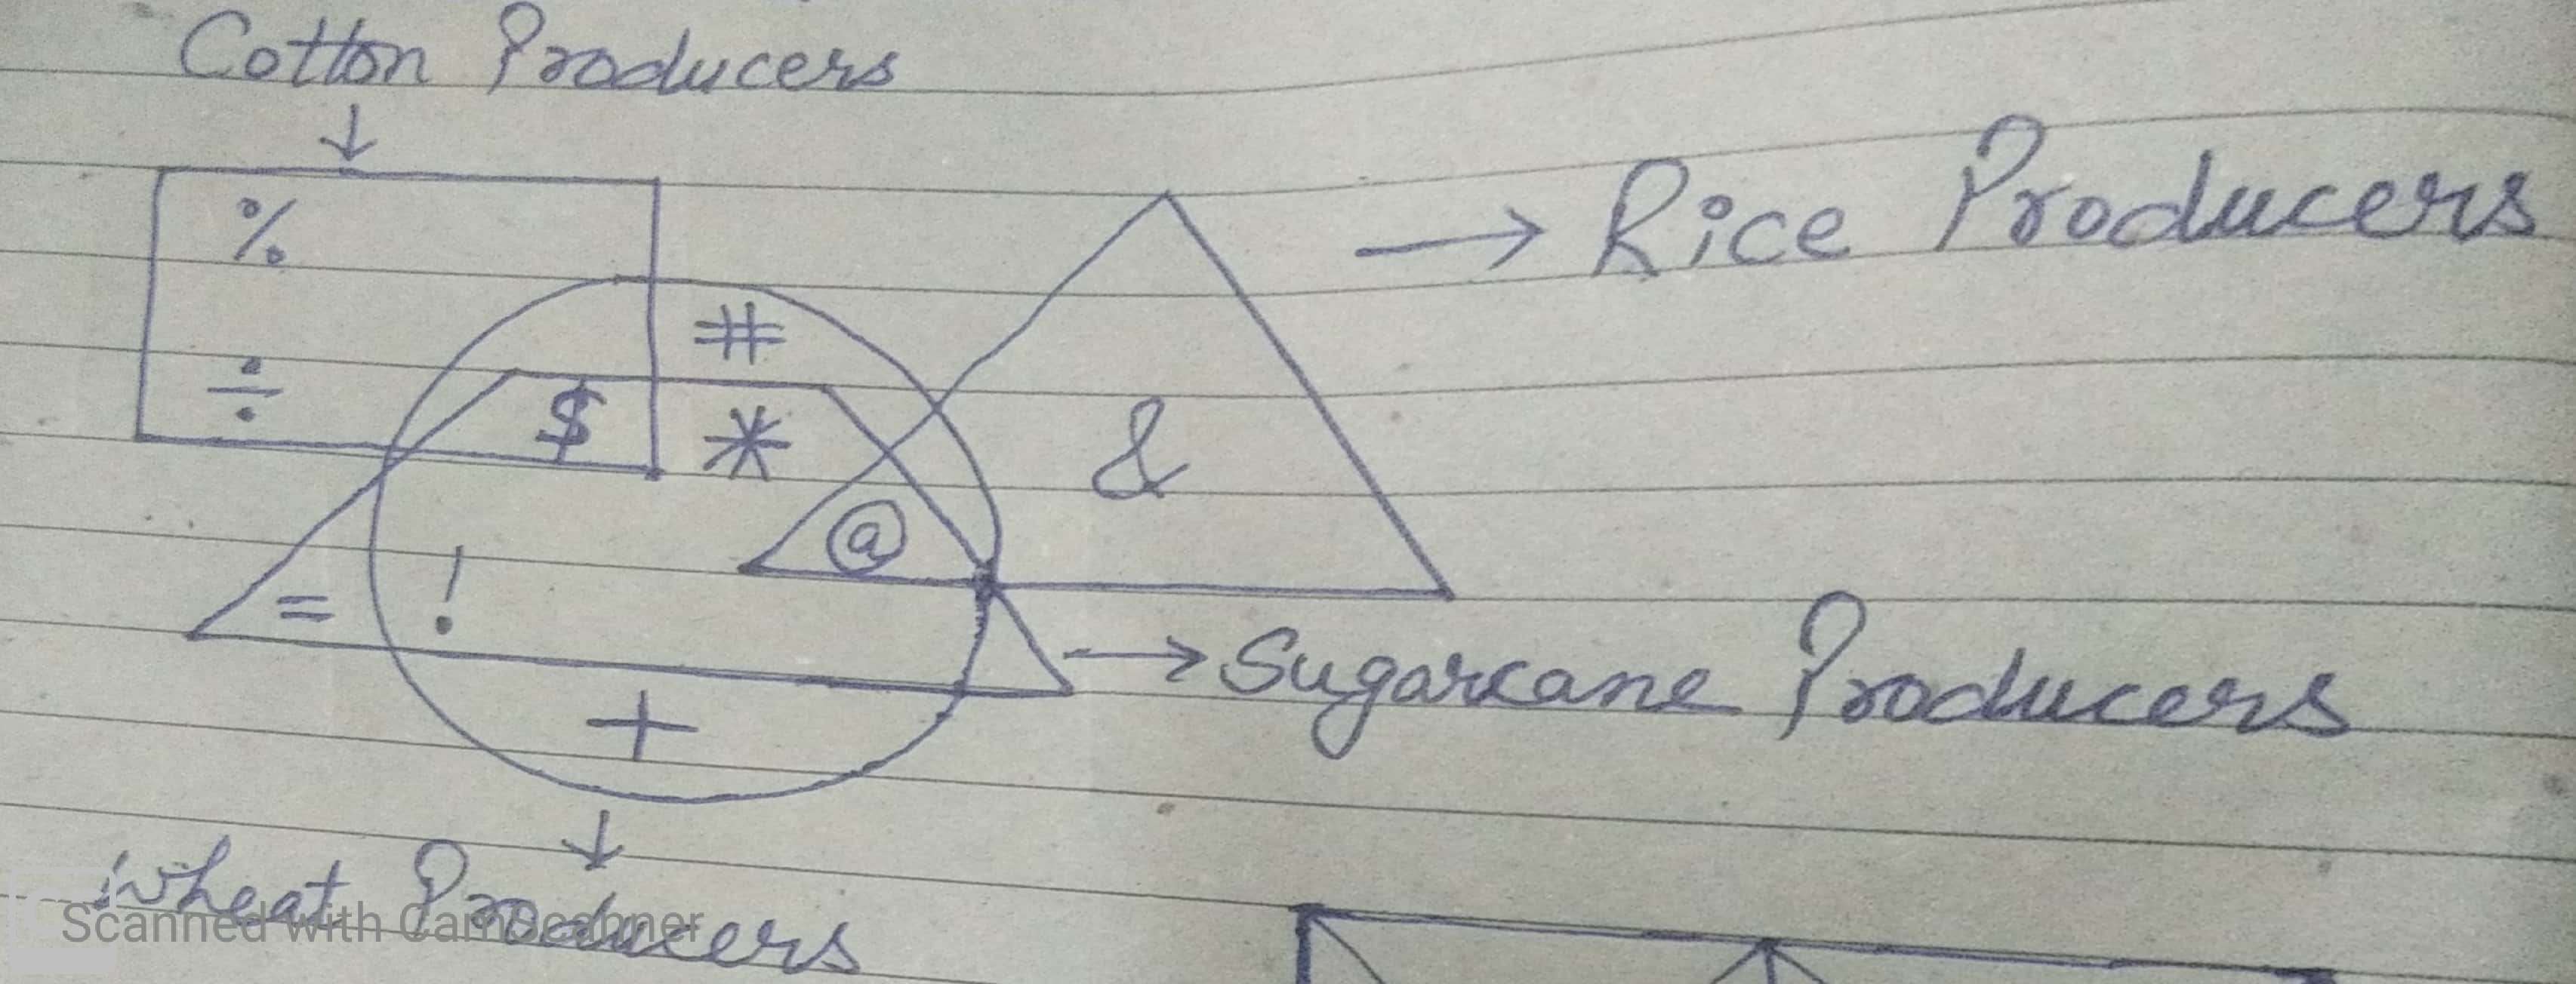 Cotton Producers
↓
%
→ Rice Producers
#
÷
$
*
&
@
= !
→ Sugarcane Producers
+
↓
Wheat Producers
Scanned with CamScanner